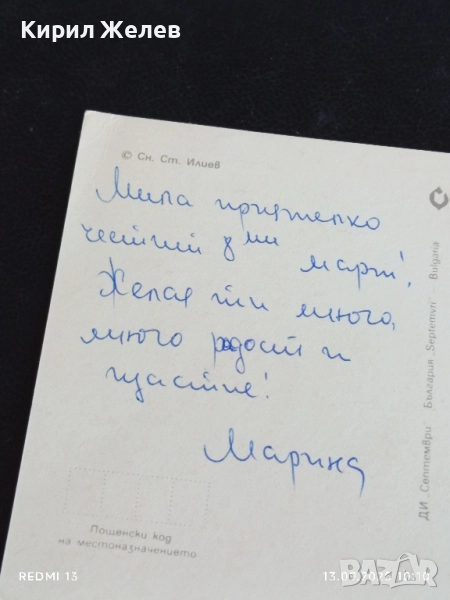 Кирил Желев
© Сн. Ст. Илиев
Мила приятелко
честит 8ми
март!
Желая ти много,
много радост и
щастие!
Марина
Пощенски код
на местоназначението
ДИ „Септември" България „Septemvri" Bulgaria
REDMI 13
BAZAR